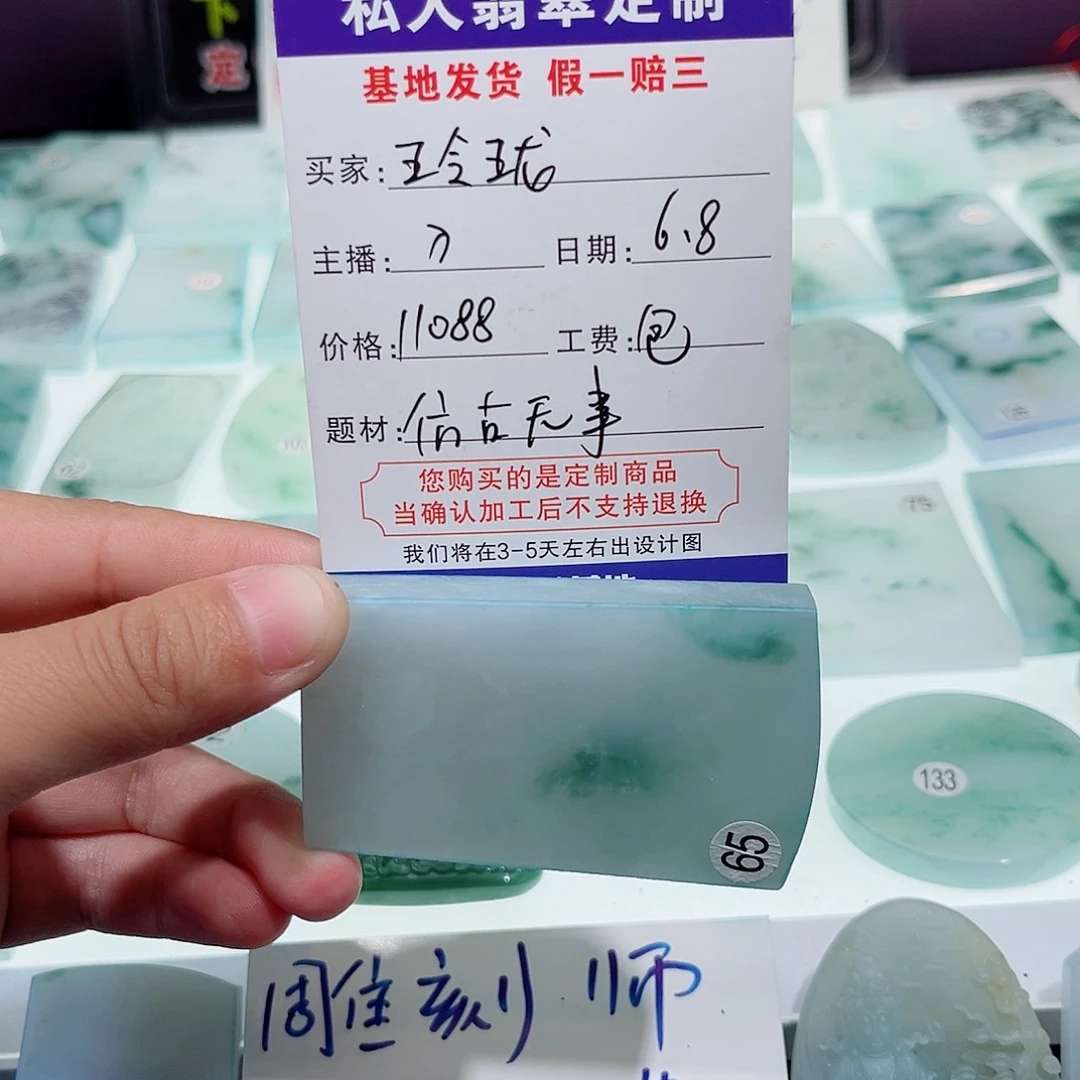 下
定
私人翡翠定制
基地发货 假一赔三
买家:王玲珑
主播: 日期:6.8
价格:11088 工费:包
题材:信古无事
您购买的是定制商品
当确认加工后不支持退换
我们将在3-5天左右出设计图
75
133
65
雕刻师